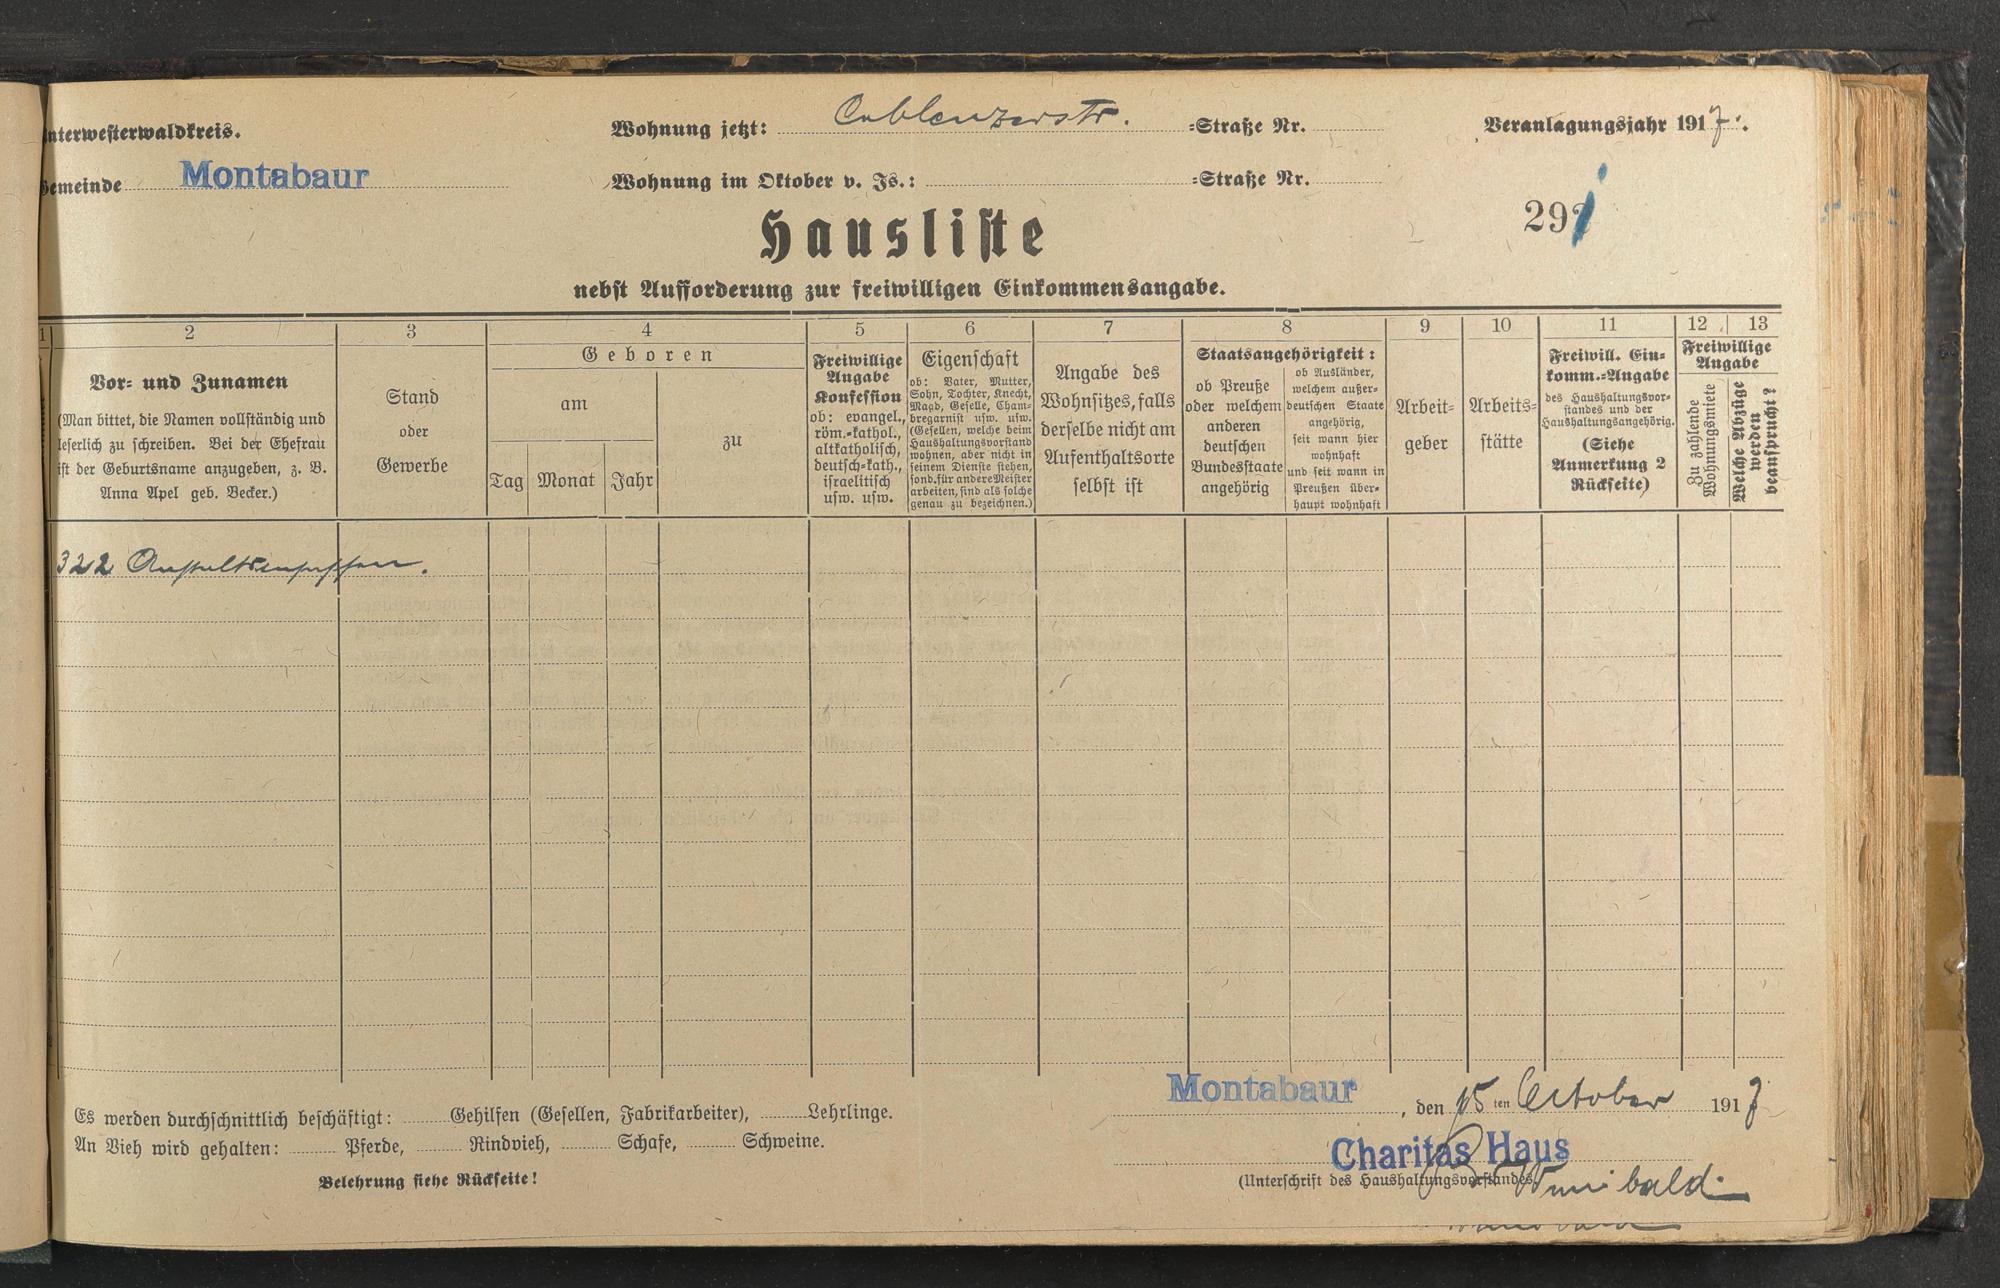 nterwesterwaldkreis.
Wohnung jetzt: Coblenzerstr. =Straße Nr.
Veranlagungsjahr 1917.
Gemeinde Montabaur
Wohnung im Oktober v. Js.: =Straße Nr.
291
Hausliste
nebst Aufforderung zur freiwilligen Einkommensangabe.
1 2 3 4 5 6 7 8 9 10 11 12 13
Vor- und Zunamen
(Man bittet, die Namen vollständig und
leserlich zu schreiben. Bei der Ehefrau
ist der Geburtsname anzugeben, z. B.
Anna Apel geb. Becker.)
Stand
oder
Gewerbe
Geboren
am
Tag Monat Jahr
zu
Freiwillige
Angabe
Konfession
ob: evangel.,
röm.-kathol.,
altkatholisch,
deutsch-kath.,
israelitisch
usw. usw.
Eigenschaft
ob: Vater, Mutter,
Sohn, Tochter, Knecht,
Magd, Geselle, Cham-
bregarnist usw. usw.
(Gesellen, welche beim
Haushaltungsvorstand
wohnen, aber nicht in
seinem Dienste stehen,
sond. für andere Meister
arbeiten, sind als solche
genau zu bezeichnen.)
Angabe des
Wohnsitzes, falls
derselbe nicht am
Aufenthaltsorte
selbst ist
Staatsangehörigkeit:
ob Preuße
oder welchem
anderen
deutschen
Bundesstaate
angehörig
ob Ausländer,
welchem außer-
deutschen Staate
angehörig,
seit wann hier
wohnhaft
und seit wann in
Preußen über-
haupt wohnhaft
Arbeit-
geber
Arbeits-
stätte
Freiwill. Ein-
komm.-Angabe
des Haushaltungsvor-
standes und der
Haushaltungsangehörig.
(Siehe
Anmerkung 2
Rückseite)
Freiwillige
Angabe
Zu zahlende
Wohnungsmiete
Welche Abzüge
werden
beansprucht?
322 Anstaltsinsassen.
Es werden durchschnittlich beschäftigt: Gehilfen (Gesellen, Fabrikarbeiter), Lehrlinge.
An Vieh wird gehalten: Pferde, Rindvieh, Schafe, Schweine.
Belehrung siehe Rückseite!
Montabaur, den 15ten October 1917
Charitas Haus
(Unterschrift des Haushaltungsvorstandes
Wunibald